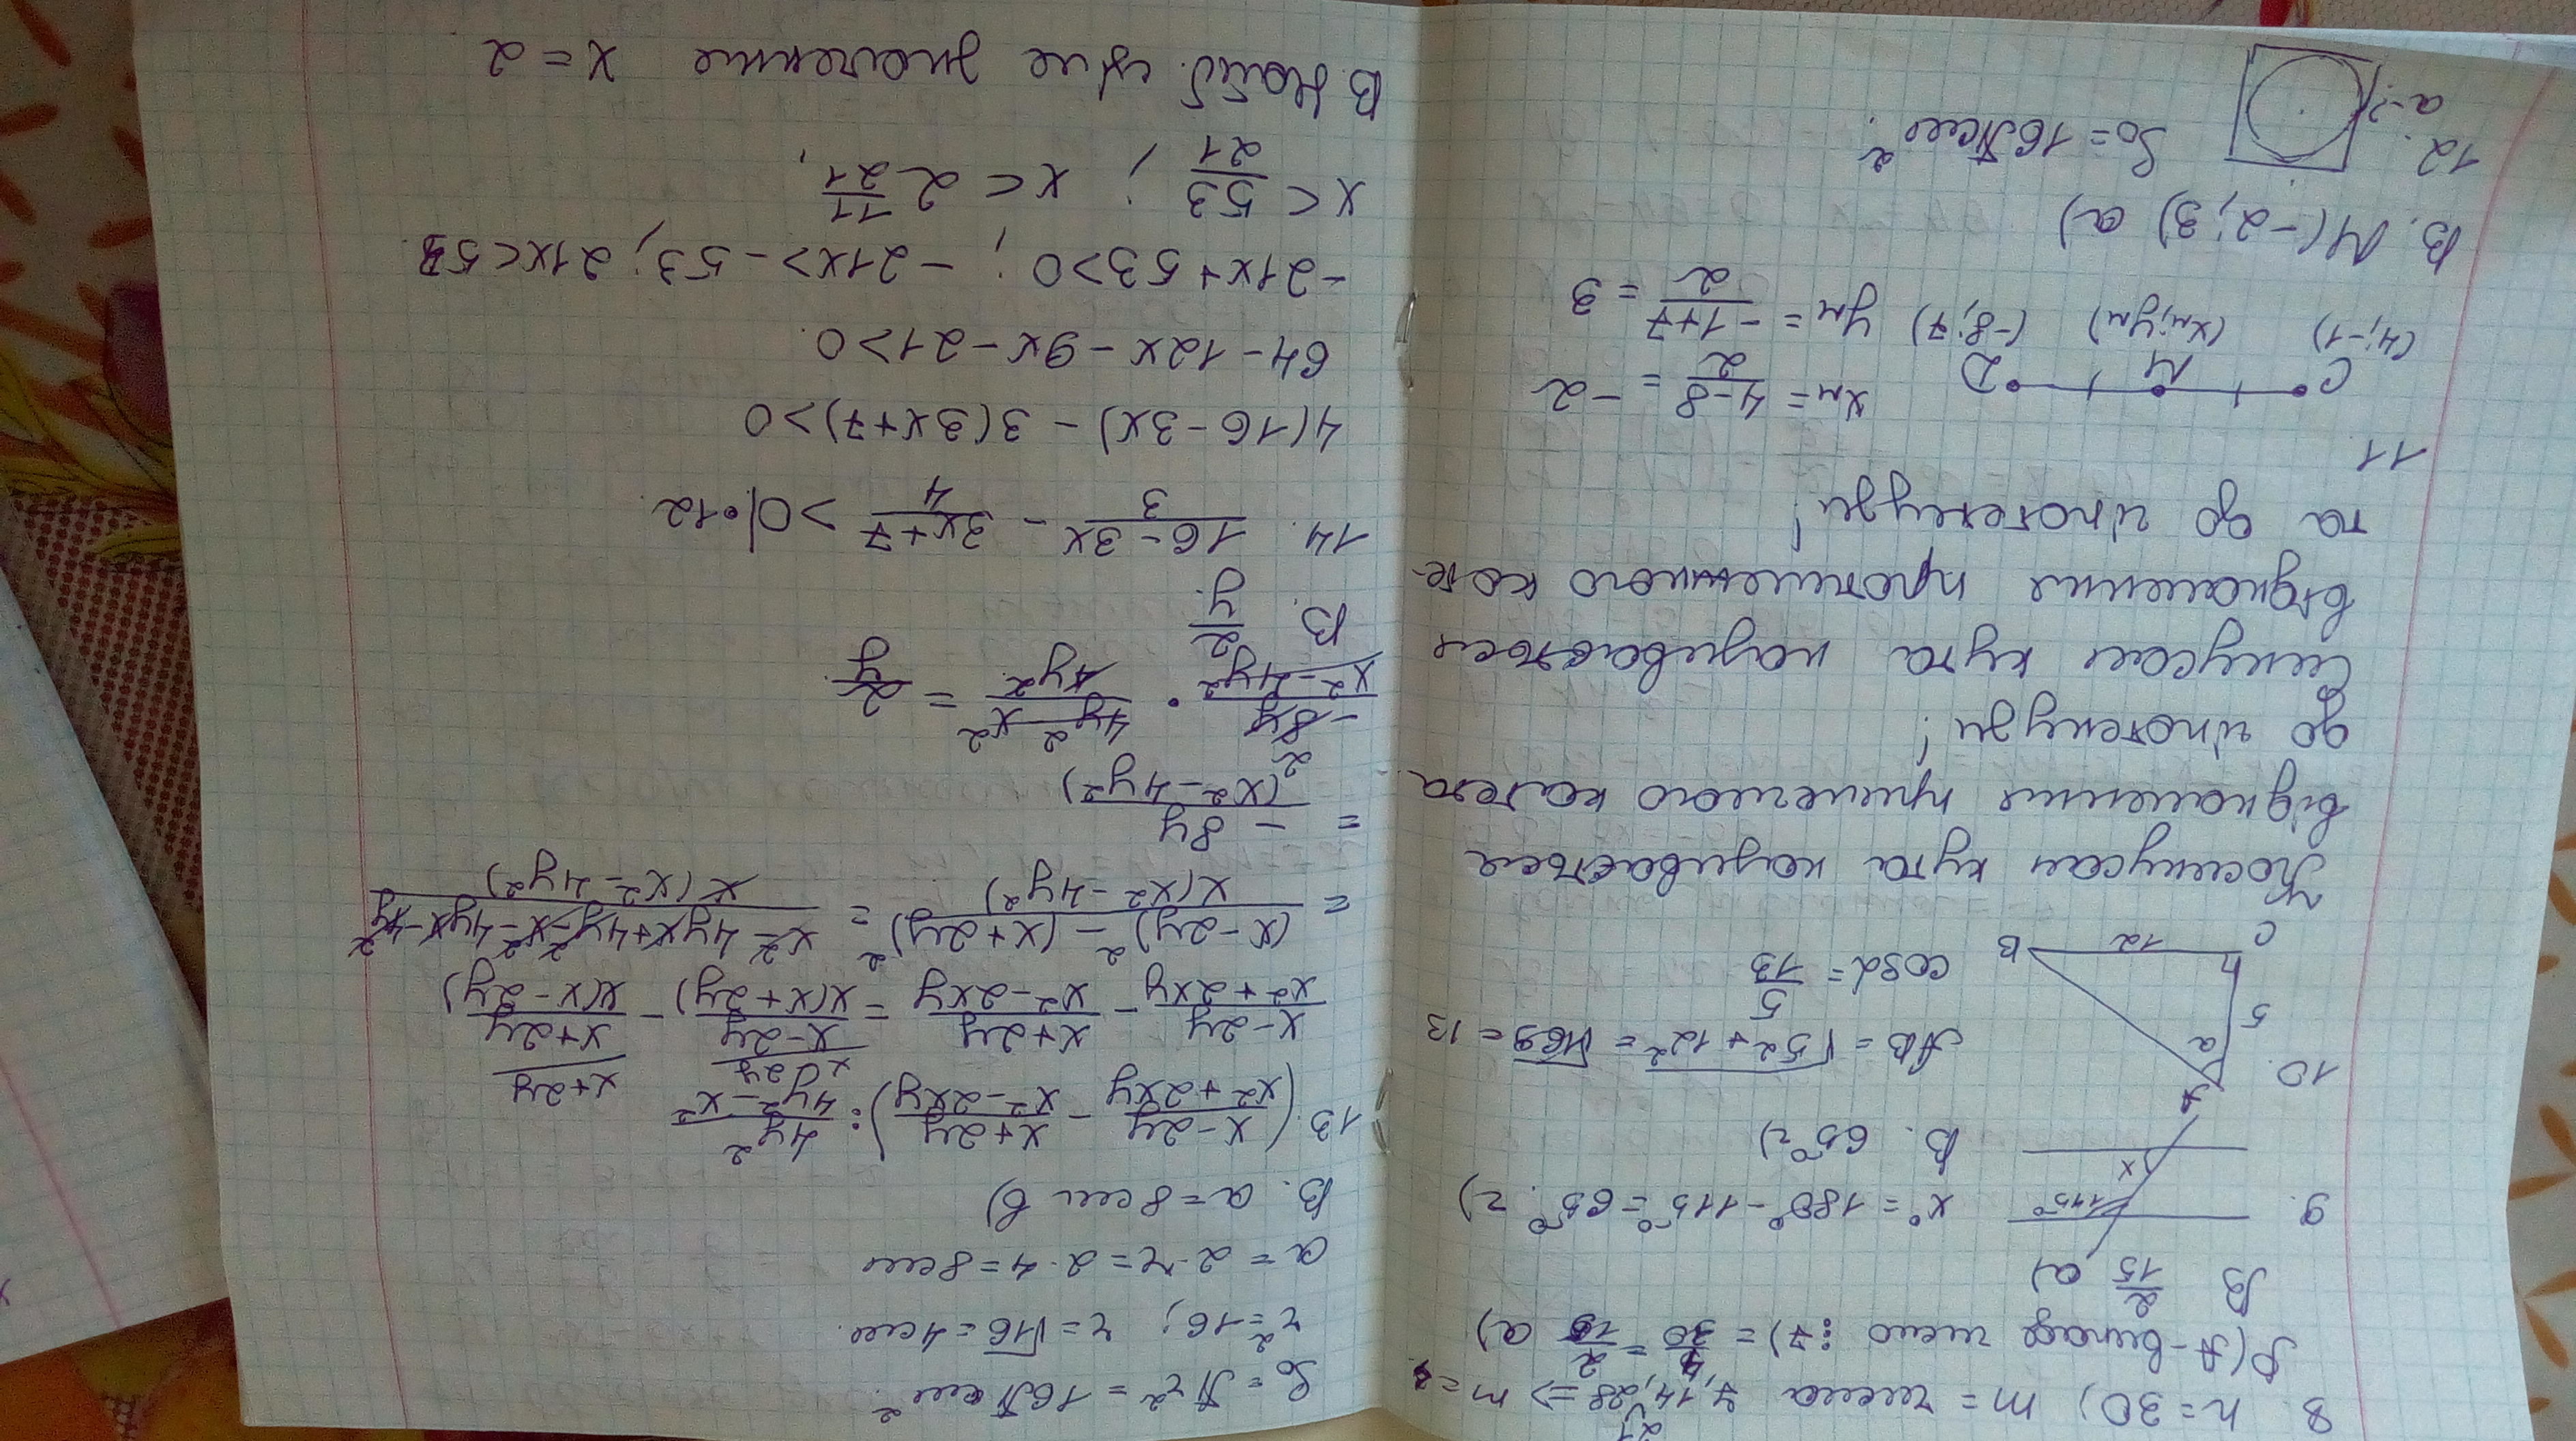 8. n=30) m = числа 7,14,28 ⇒ m=4
21
P(A-випаде число :7) = 4/30 = 2/15 а)
В 2/15 а)
9. 115° x x° = 180° - 115° = 65° г)
В. 65° г)
10. A a 5 C 12 B
AB = √5²+12² = √169 = 13
cosα = 5/13
Косинусом кута називається
відношення прилеглого катета
до гіпотенузи;
Синусом кута називається
відношення протилежного кате-
та до гіпотенузи;
11.
C M D
xм = (4-8)/2 = -2
(4;-1) (xм;yм) (-8;7) yм = (-1+7)/2 = 3
В. M(-2;3) а)
12. a-? S₀ = 16π см²
S₀ = πr² = 16π см².
r² = 16; r = √16 = 4 см.
a = 2·r = 2·4 = 8 см
В. a = 8 см б)
13. ((x-2y)/(x²+2xy) - (x+2y)/(x²-2xy)) : 4y²/(4y²-x²)
(x-2y)/(x²+2xy) - (x+2y)/(x²-2xy) = (x-2y)/(x(x+2y)) - (x+2y)/(x(x-2y))
= ((x-2y)² - (x+2y)²)/(x(x²-4y²)) = (x²-4yx+4y²-x²-4yx-4y²)/(x(x²-4y²))
= -8y/(x²-4y²)
-8y/(x²-4y²) · (4y²-x²)/4y² = 2/y.
В. 2/y.
14. (16-3x)/3 - (3x+7)/4 > 0|·12
4(16-3x) - 3(3x+7) > 0
64-12x-9x-21>0.
-21x+53>0; -21x>-53; 21x<53.
x < 53/21; x < 2 11/21,
В. Найб. ціле значення x = 2